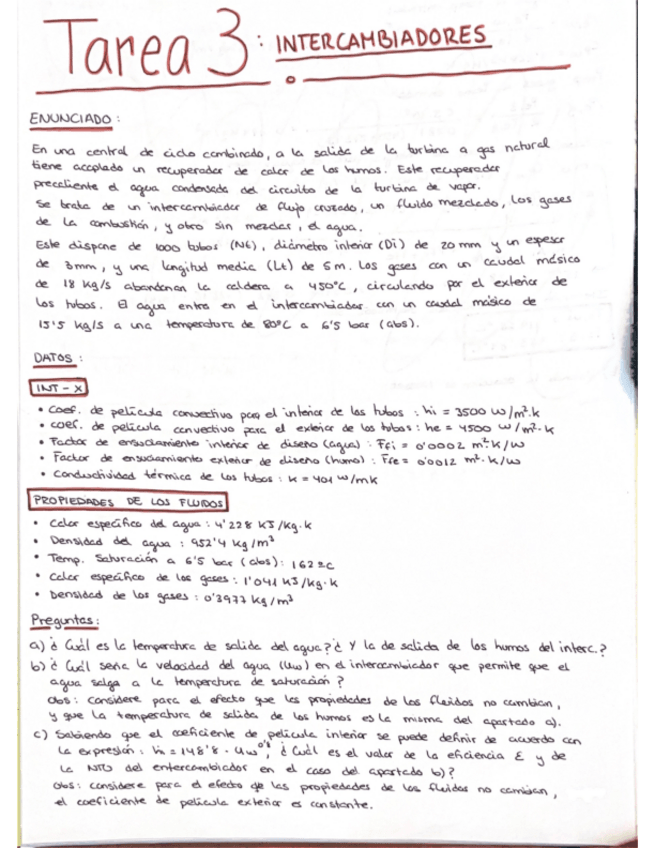 Tarea 3: INTERCAMBIADORES
ENUNCIADO:
En una central de ciclo combinado, a la salida de la turbina a gas natural
tiene acoplado un recuperador de calor de los humos. Este recuperador
precaliente el agua condensada del circuito de la turbina de vapor.
Se trata de un intercambiador de flujo cruzado, un fluido mezclado, los gases
de la combustión, y otro sin mezclar, el agua.
Este dispone de 1000 tubos (Nt), diámetro interior (Di) de 20 mm y un espesor
de 3mm, y una longitud media (Lt) de 5m. Los gases con un caudal másico
de 18 kg/s abandonan la caldera a 450ºC, circulando por el exterior de
los tubos. El agua entra en el intercambiador con un caudal másico de
15'5 kg/s a una temperatura de 80ºC a 6'5 bar (abs).
DATOS:
INT-X
• Coef. de película convectivo para el interior de los tubos: hi = 3500 W/m².K
• coef. de película convectivo para el exterior de los tubos: he = 4500 W/m².K
• Factor de ensuciamiento interior de diseno (agua): Ffi = 0'0002 m².K/W
• Factor de ensuciamiento exterior de diseno (humo): Ffe = 0'0012 m².K/W
• Conductividad térmica de los tubos: k = 401 W/mK
PROPIEDADES DE LOS FLUIDOS
• Calor específico del agua: 4'228 KJ/kg.K
• Densidad del agua: 952'4 kg/m³
• Temp. Saturación a 6'5 bar (abs): 162ºC
• Calor específico de los gases: 1'041 KJ/kg.K
• Densidad de los gases: 0'3977 kg/m³
Preguntas:
a) ¿ Cuál es la temperatura de salida del agua? ¿ Y la de salida de los humos del interc.?
b) ¿ Cuál seria la velocidad del agua (Uw) en el intercambiador que permite que el
agua salga a la temperatura de saturación?
Obs: Considere para el efecto que las propiedades de los fluidos no cambian,
y que la temperatura de salida de los humos es la misma del apartado a).
c) Sabiendo que el coeficiente de película interior se puede definir de acuerdo con
la expresión: hi = 148'8 · Uw^0'8, ¿ Cuál es el valor de la eficiencia ε y de
la NTU del entercambiador en el caso del apartado b)?
Obs: considere para el efecto que las propiedades de los fluidos no cambian,
el coeficiente de película exterior es constante.